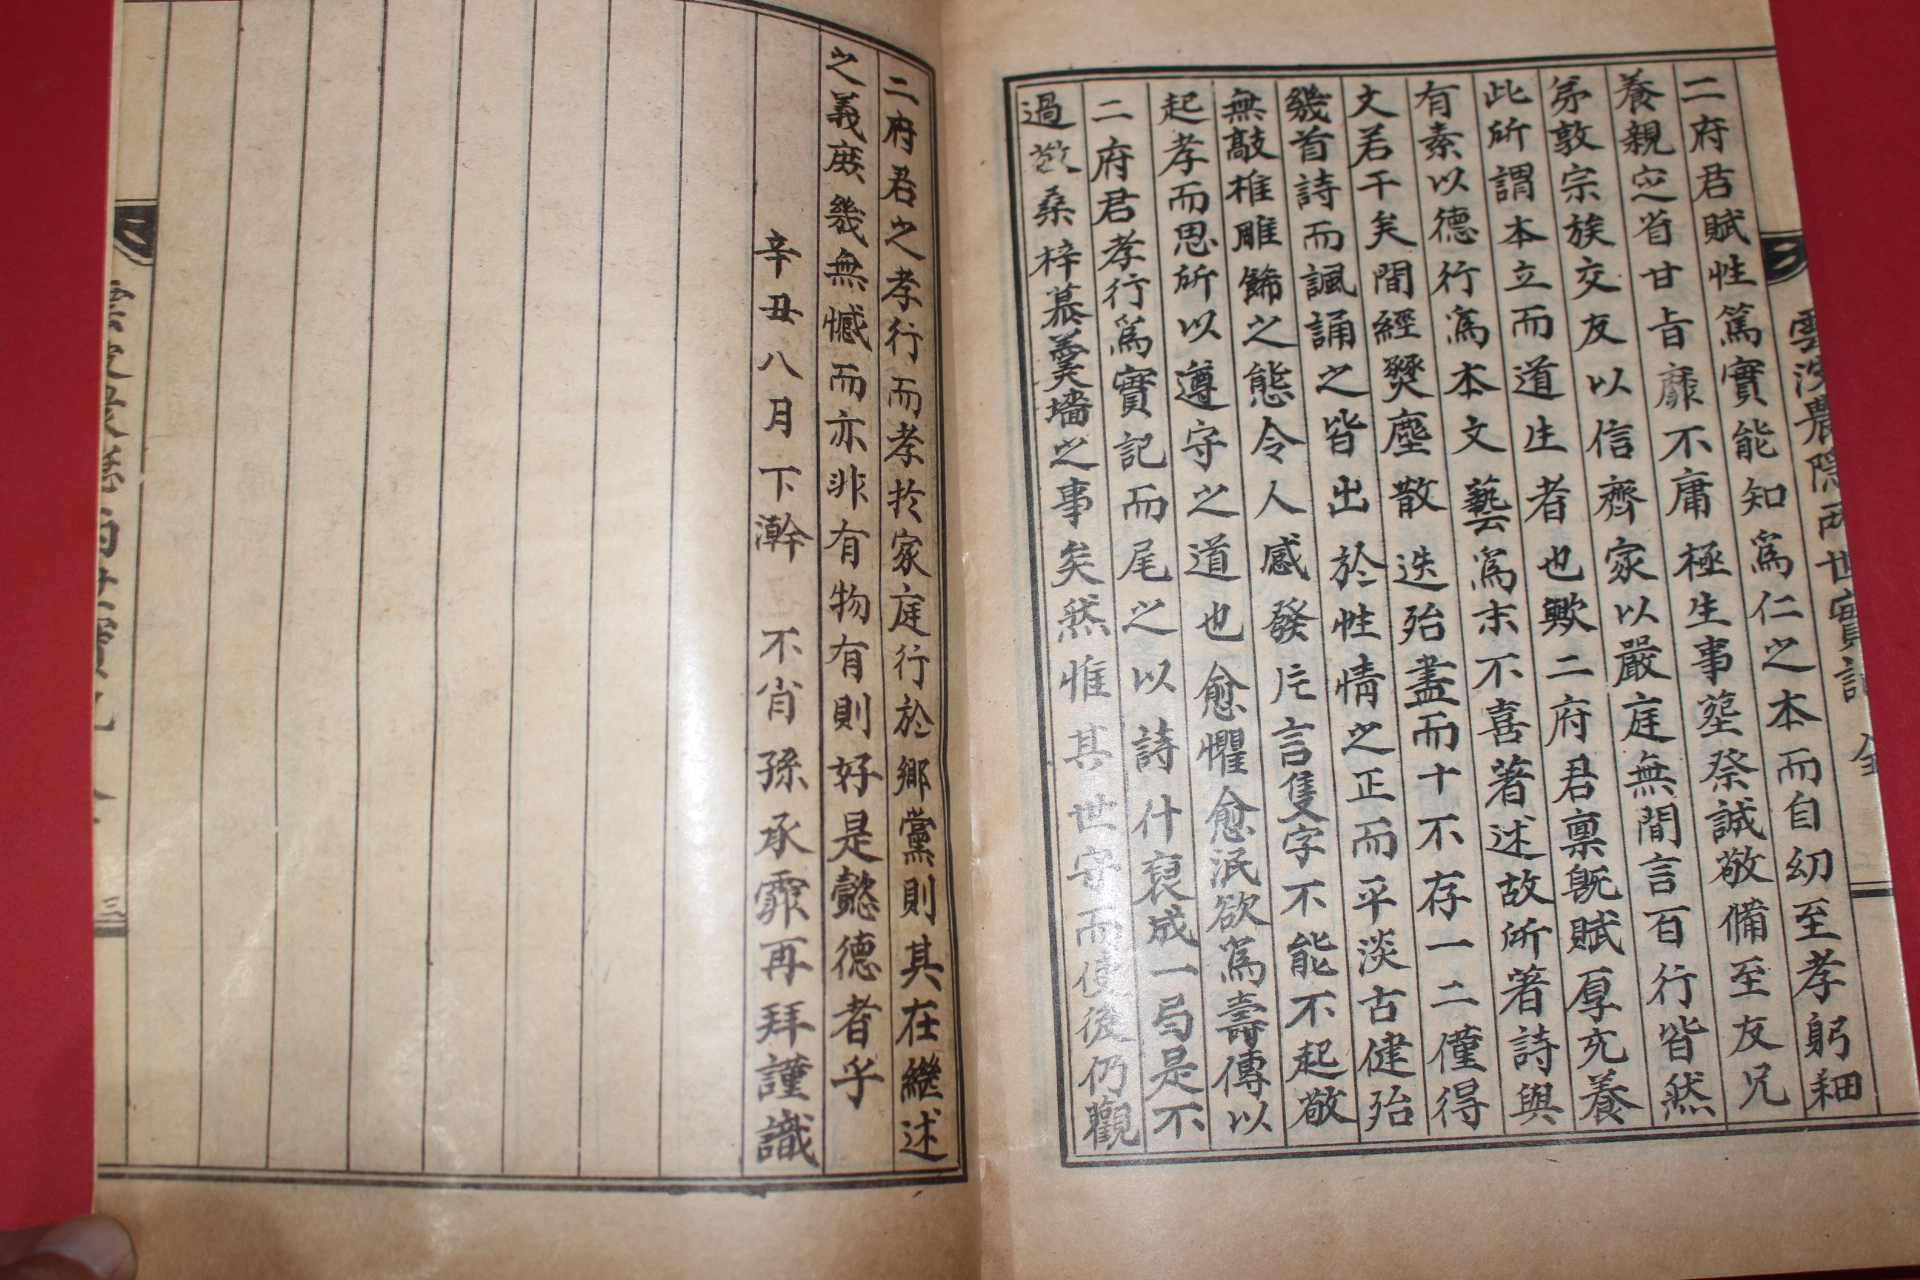 二府君賦性篤實能知爲仁之本而自幼至孝躬耕
養親定省甘旨靡不庸極生事塟祭誠敬備至友兄
弟敦宗族交友以信齊家以嚴庭無間言百行皆然
此所謂本立而道生者也歟二府君稟旣賦厚充養
有素以德行爲本文藝爲末不喜著述故所著詩與
文若干矣間經燹塵散迭殆盡而十不存一二僅得
幾首詩而諷誦之皆出於性情之正而平淡古健殆
無敲椎雕餙之態令人感發片言隻字不能不起敬
起孝而思所以遵守之道也愈懼愈泯欲爲壽傳以
二府君孝行爲實記而尾之以詩什裒成一局是不
過敬桑梓慕羹墻之事矣然惟其世守而使後仍觀
二府君之孝行而孝於家庭行於鄕黨則其在繼述
之義庶幾無憾而亦非有物有則好是懿德者乎
辛丑八月下澣 不肖孫承霏再拜謹識
雲沙農隱兩世實記 全
三